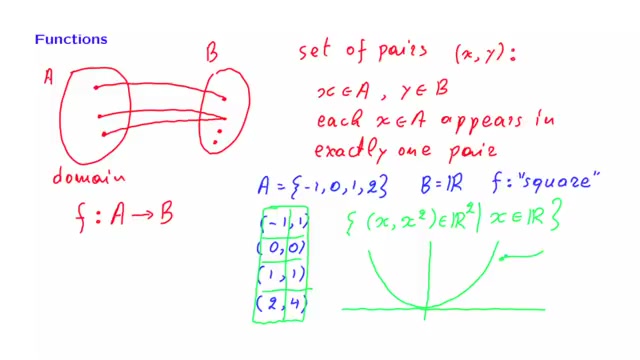 Functions
A
B
set of pairs (x, y):
x ∈ A, y ∈ B
each x ∈ A appears in
exactly one pair
domain
f : A → B
A = {-1, 0, 1, 2} B = ℝ f : "square"
(-1, 1)
(0, 0)
(1, 1)
(2, 4)
{ (x, x²) ∈ ℝ² | x ∈ ℝ }